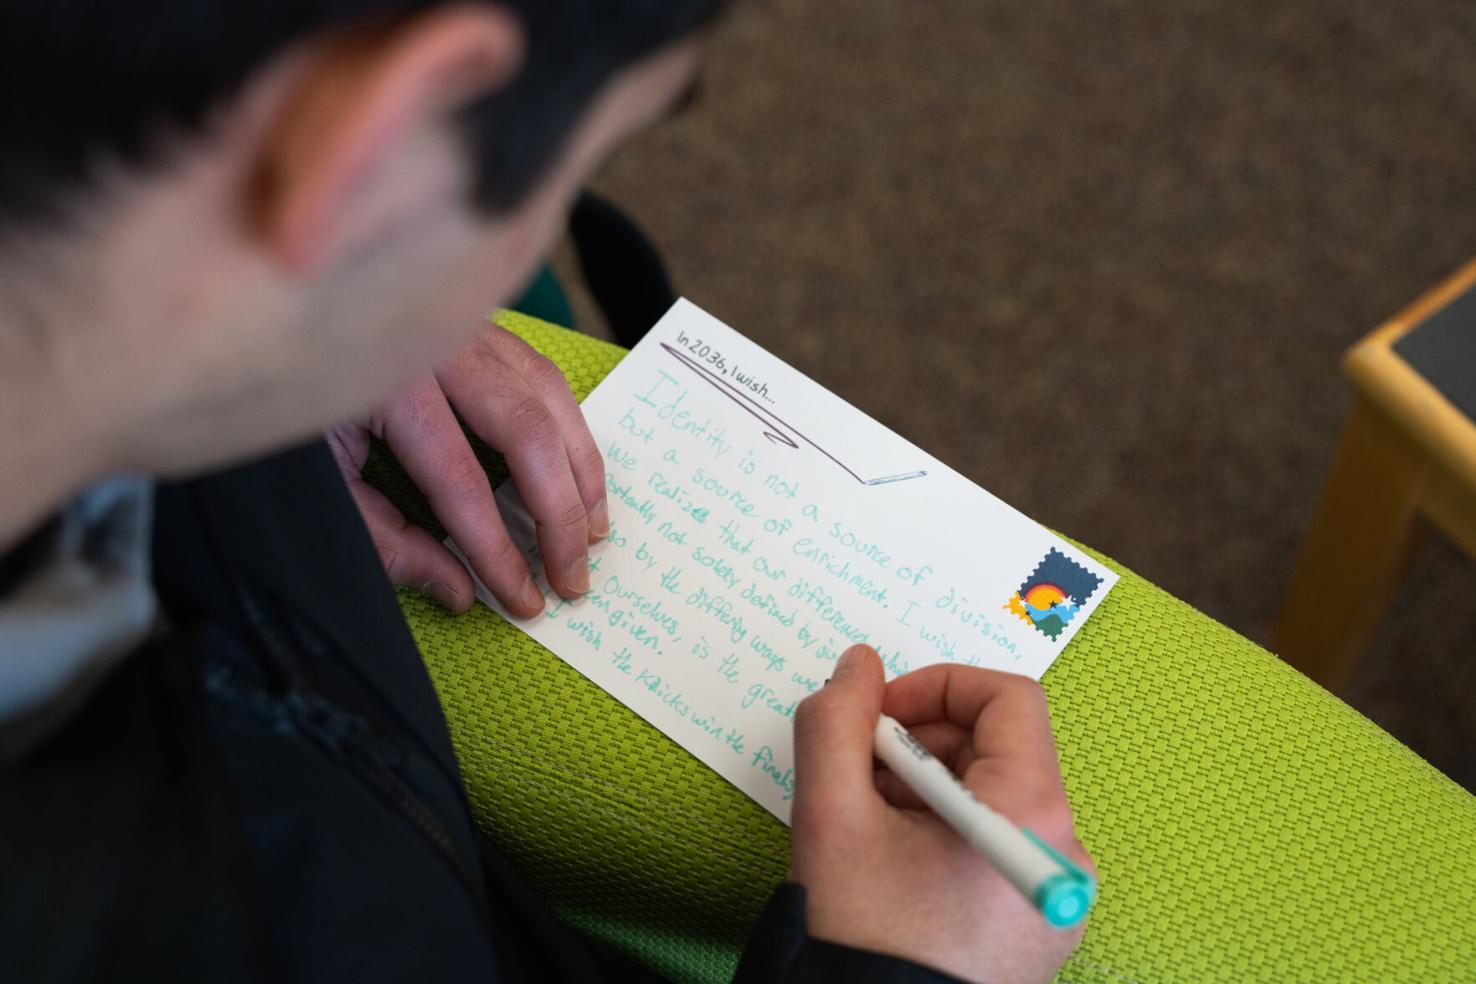 In 2036, I wish...
Identity is not a source of division,
but a source of enrichment. I wish th
we realize that our differences, whi
portantly not solely defined by
so by the differing ways we
t ourselves, is the great
en given.
I wish the Knicks win the finals